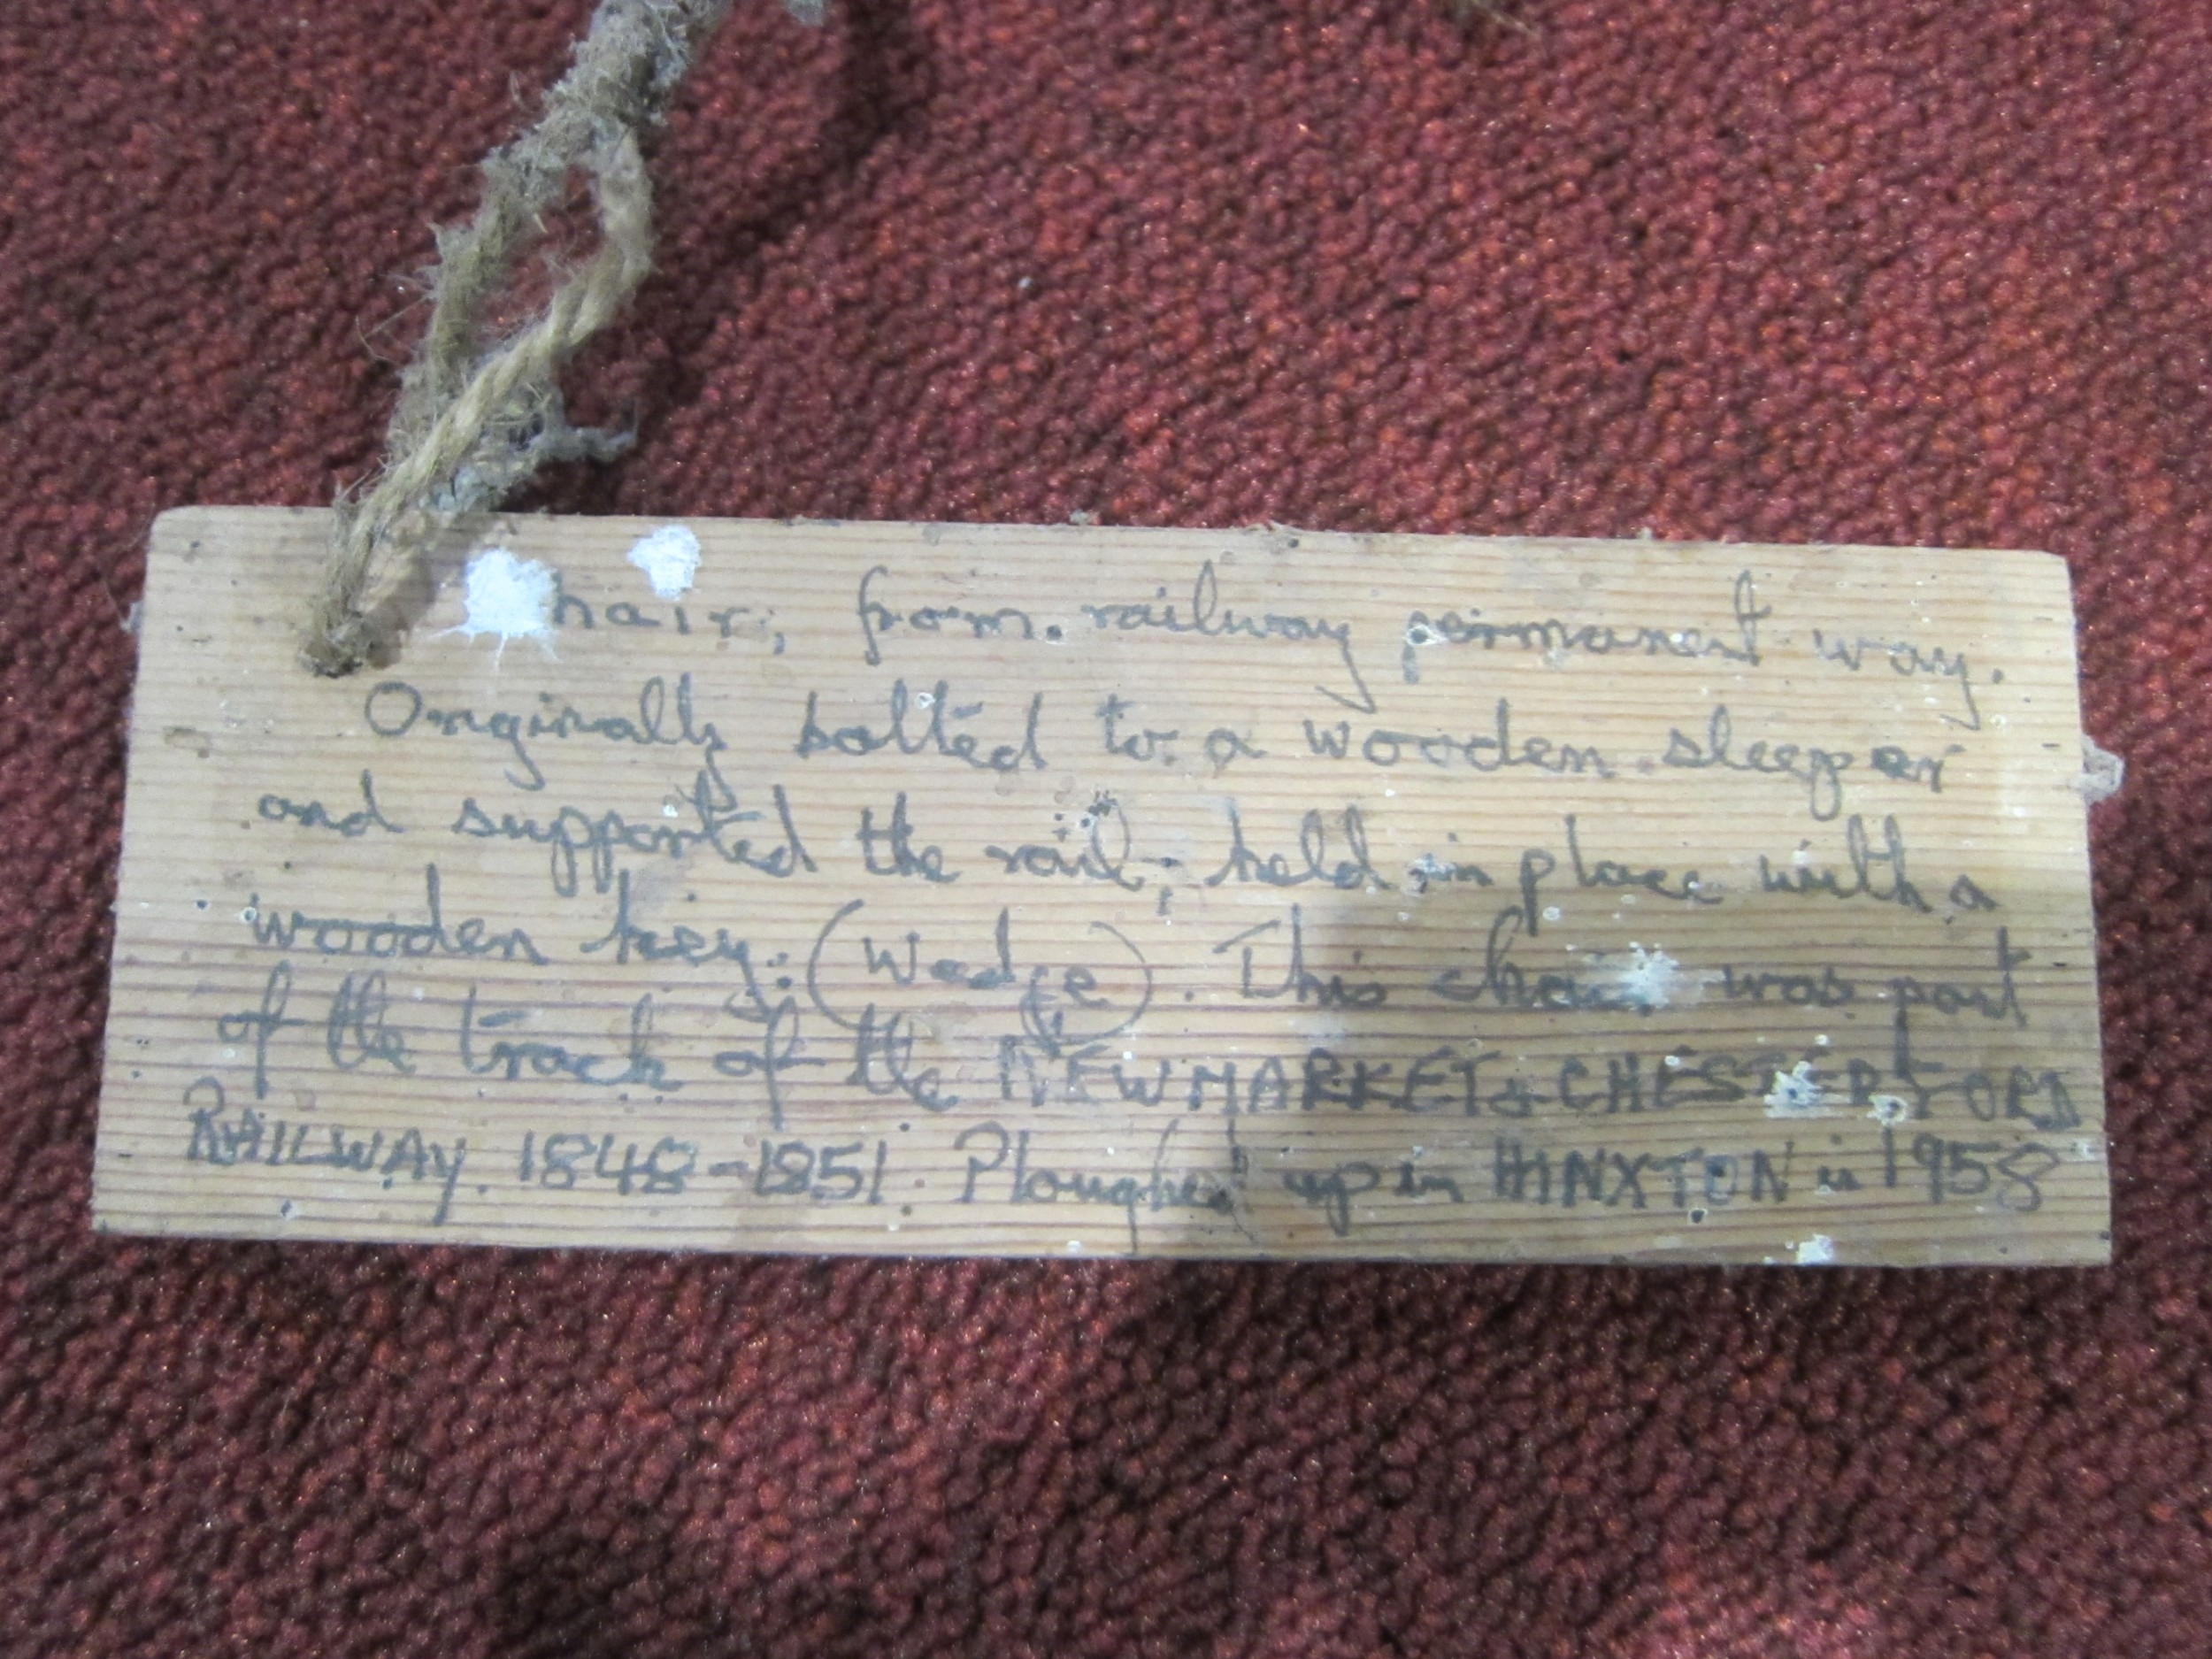 hair, from railway permanent way.
Originally bolted to a wooden sleeper
and supported the rail, held in place with a
wooden key. (Wedge). This chair was part
of the track of the NEWMARKET & CHESTERFORD
RAILWAY. 1848-1851 Ploughed up in HINXTON in 1958